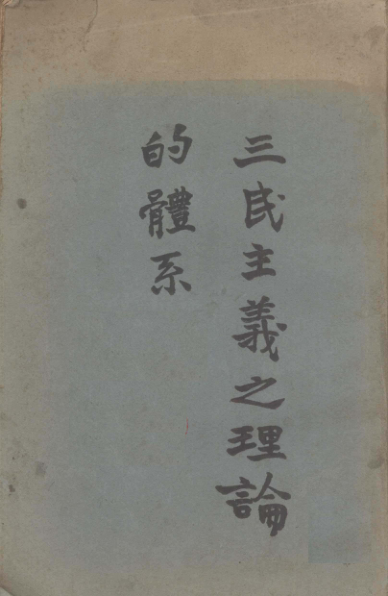 三民主義之理論
的體系